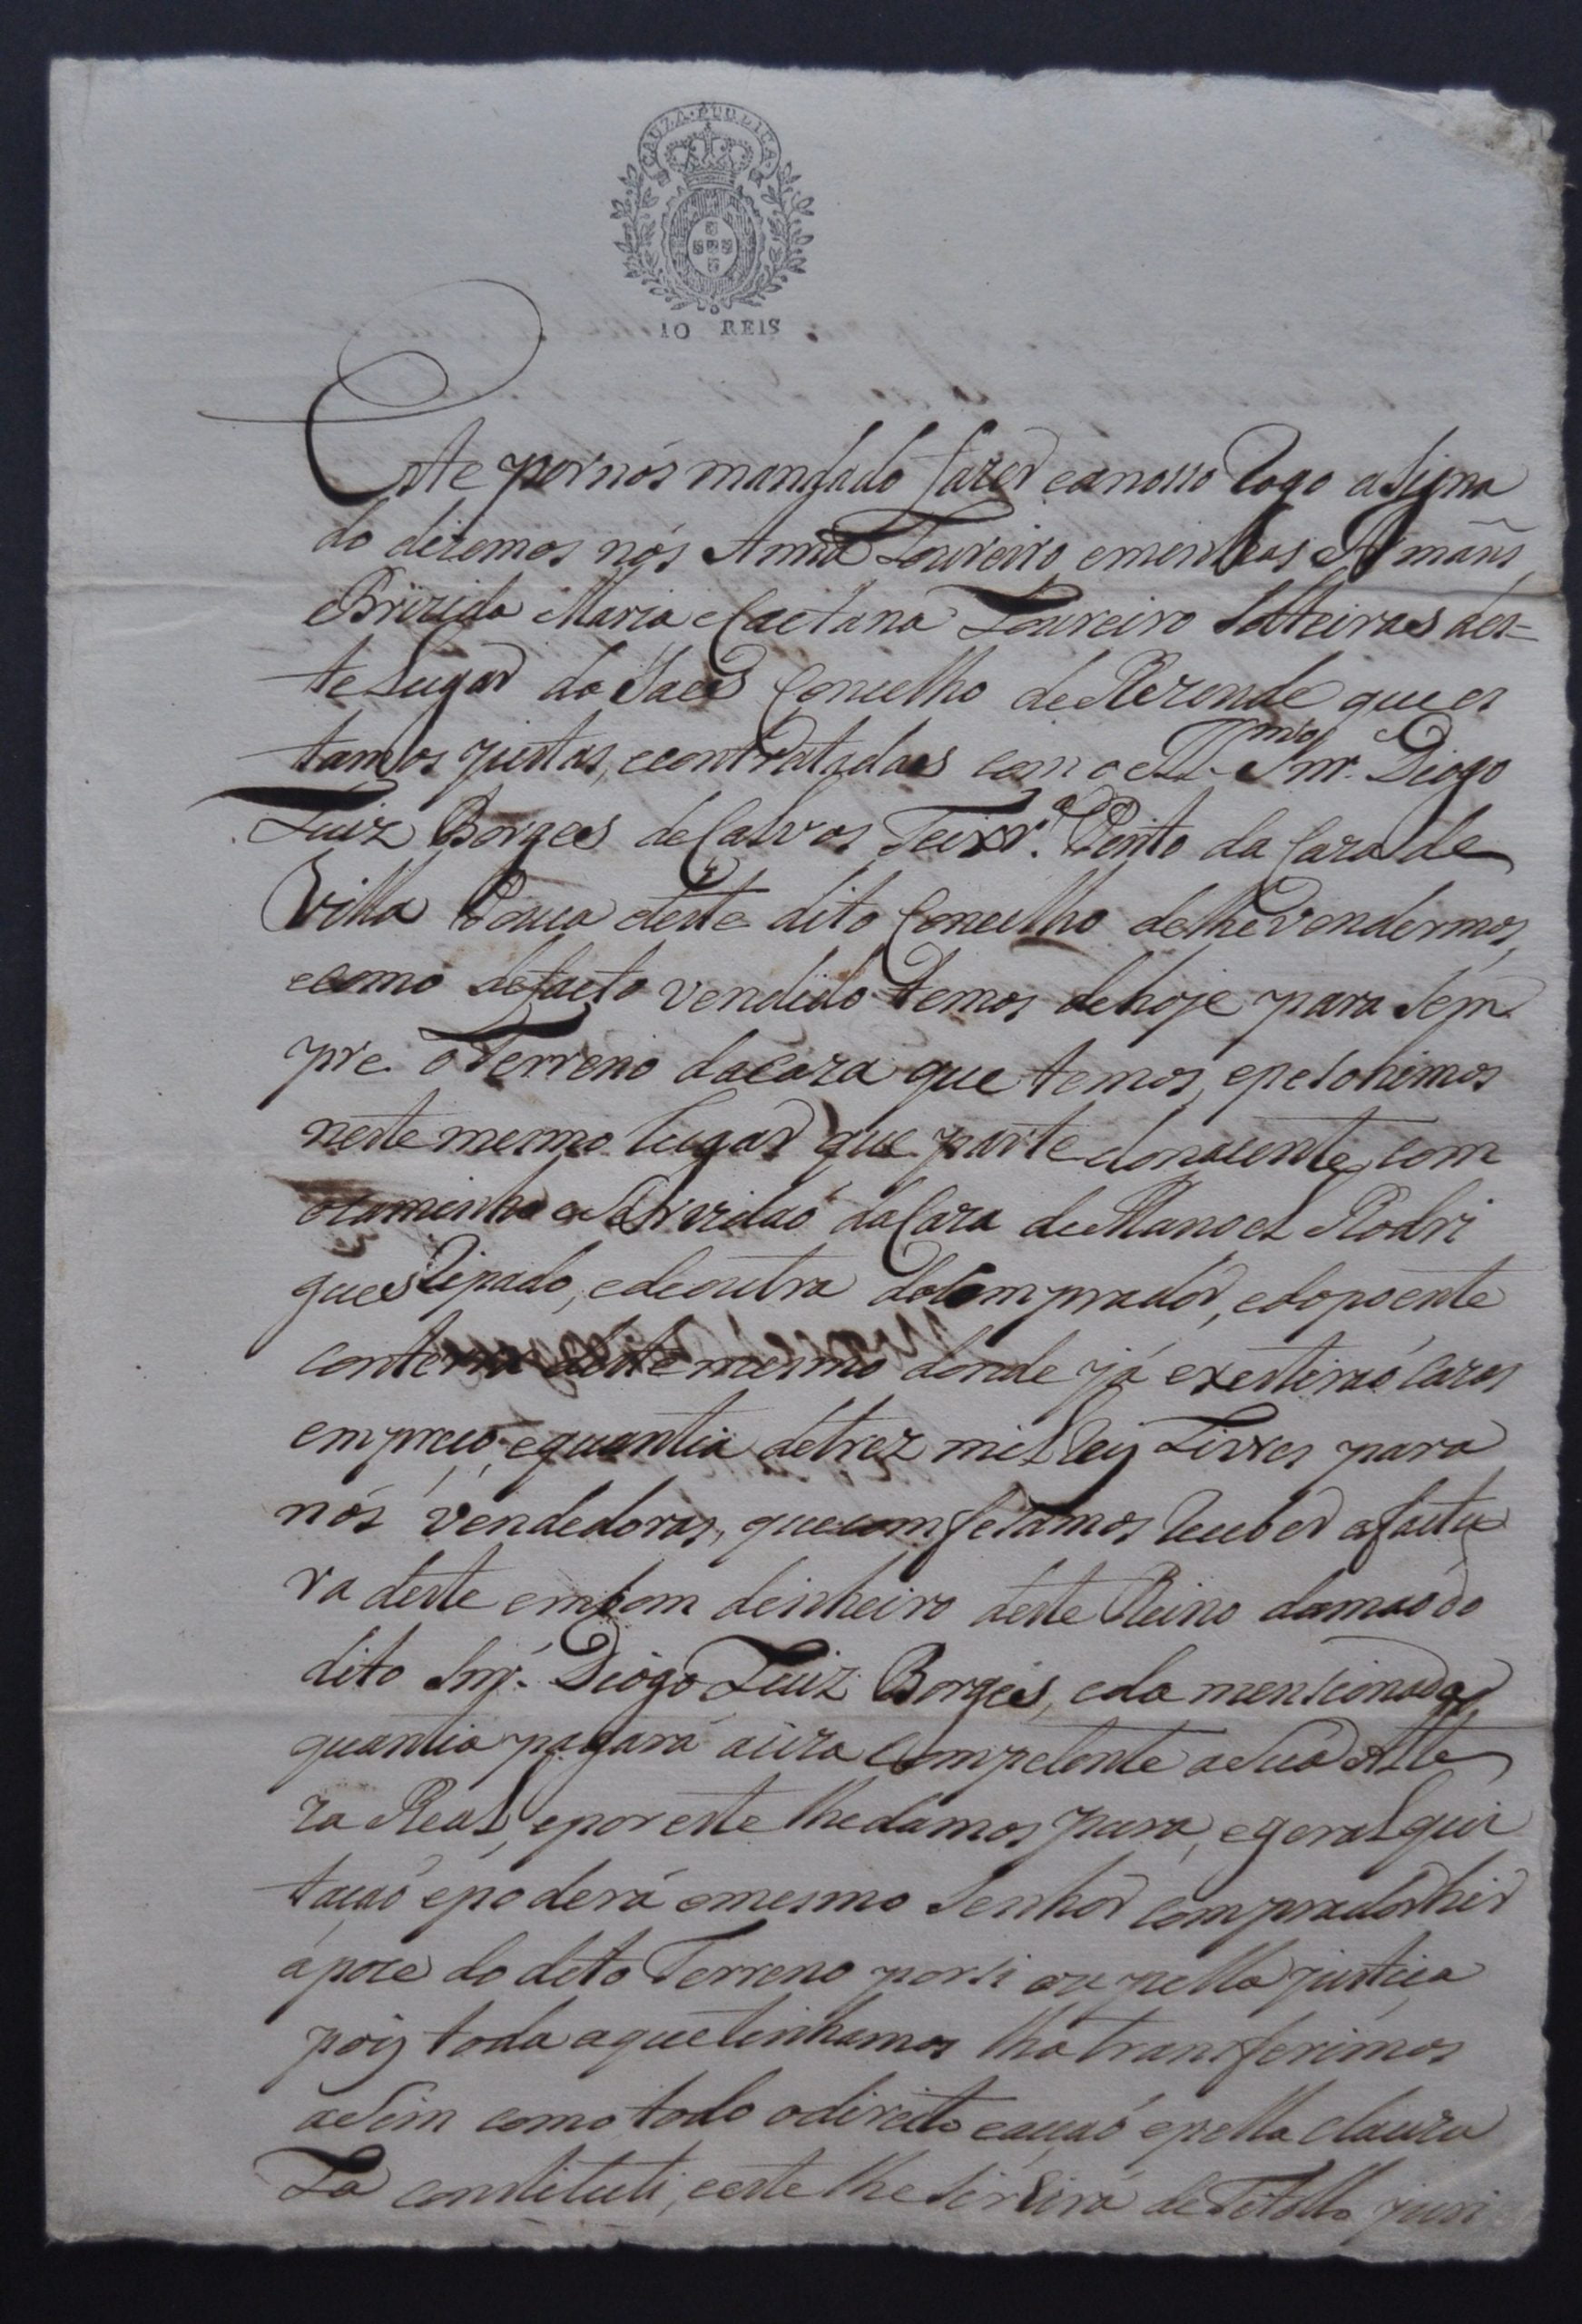 CAUZA PUBLICA
10 REIS
Este por nós mandado fazer e a nosso Rogo a Signa
do dizemos nós Anna Loureiro e minhas Irmãns
Brizida Maria e Caetana Loureiro Solteiras des=
te Lugar de Concelho de Rezende que es
tamos justas, e contratadas com o Ill.mo Snr. Diogo
Luiz Borges de Calvos Teixr.a Pinto da Caza de
Villa Pouca deste dito Concelho de lhe vendermos,
e como de facto vendido temos de hoje para Sem
pre o Terreno da caza que temos, e peSohimos
neste mesmo Lugar que parte do nascente com
o caminho e Servidaõ da Caza de Manoel Rodri
gues, e de outra do Comprador, e do poente
com mesmo donde já existiraõ cazas
em preço, e quantia de trez mil reis Livres para
nós vendedoras, que comfeSamos receber a factu
ra deste em bom dinheiro deste Reino da maõ do
dito Snr. Diogo Luiz Borges, e da mensionada
quantia pagará a ciza Competente a Sua Alte
za Real, e por este lhe damos pura, e geral qui
taçaõ e poderá o mesmo Senhor comprador hir
á poce do dito Terreno por si ou pella justiça
pois toda a que tinhamos lha transferimos
aSim como todo o direito e acçaõ e pella clauzu
La constituti, e este lhe Servirá de Titollo juri